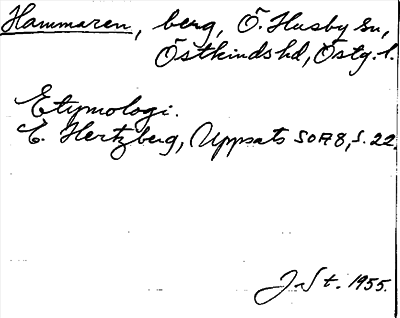 Hammaren, berg, Ö. Husby sn,
Östkinds hd, Östg. l.
Etymologi.
E. Hertzberg, Uppsats SOFI 8, s. 22.
J St. 1955.